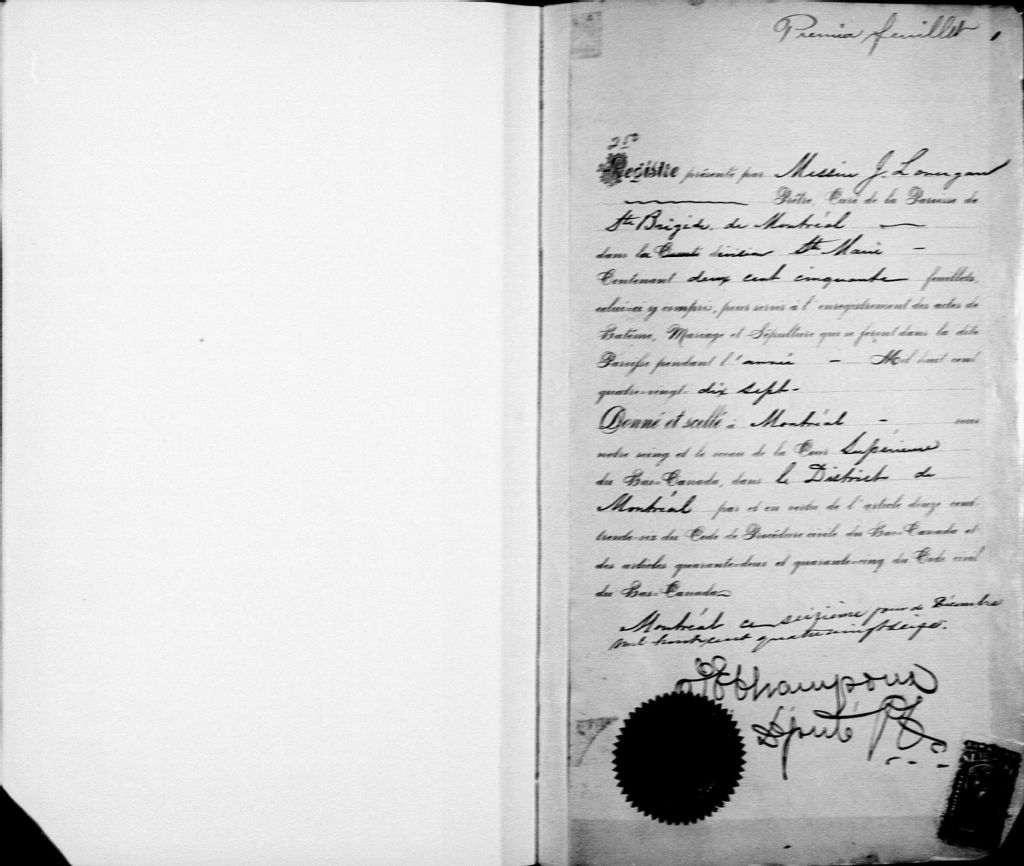 Premier feuillet
Registre présenté par Messire J. Lonergan
Prêtre, Curé de la Paroisse de
Ste Brigide, de Montréal
dans la division Ste Marie
Contenant deux cent cinquante feuillets,
celui-ci y compris, pour servir à l'enregistrement des actes de
Batême, Mariage et Sépulture que se feront dans la dite
Paroisse pendant l'année Mil huit cent
quatre-vingt dix sept-
Donné et scellé à Montréal sous
notre seing et le sceau de la Cour Supérieure
du Bas-Canada, dans le District de
Montréal par et en vertu de l'article douze cent
trente-six du Code de Procédure civile du Bas-Canada et
des articles quarante-deux et quarante-cinq du Code civil
du Bas-Canada
Montréal ce seizième jour de Décembre
mil huit cent quatre vingt seize.
Champoux
Député P.